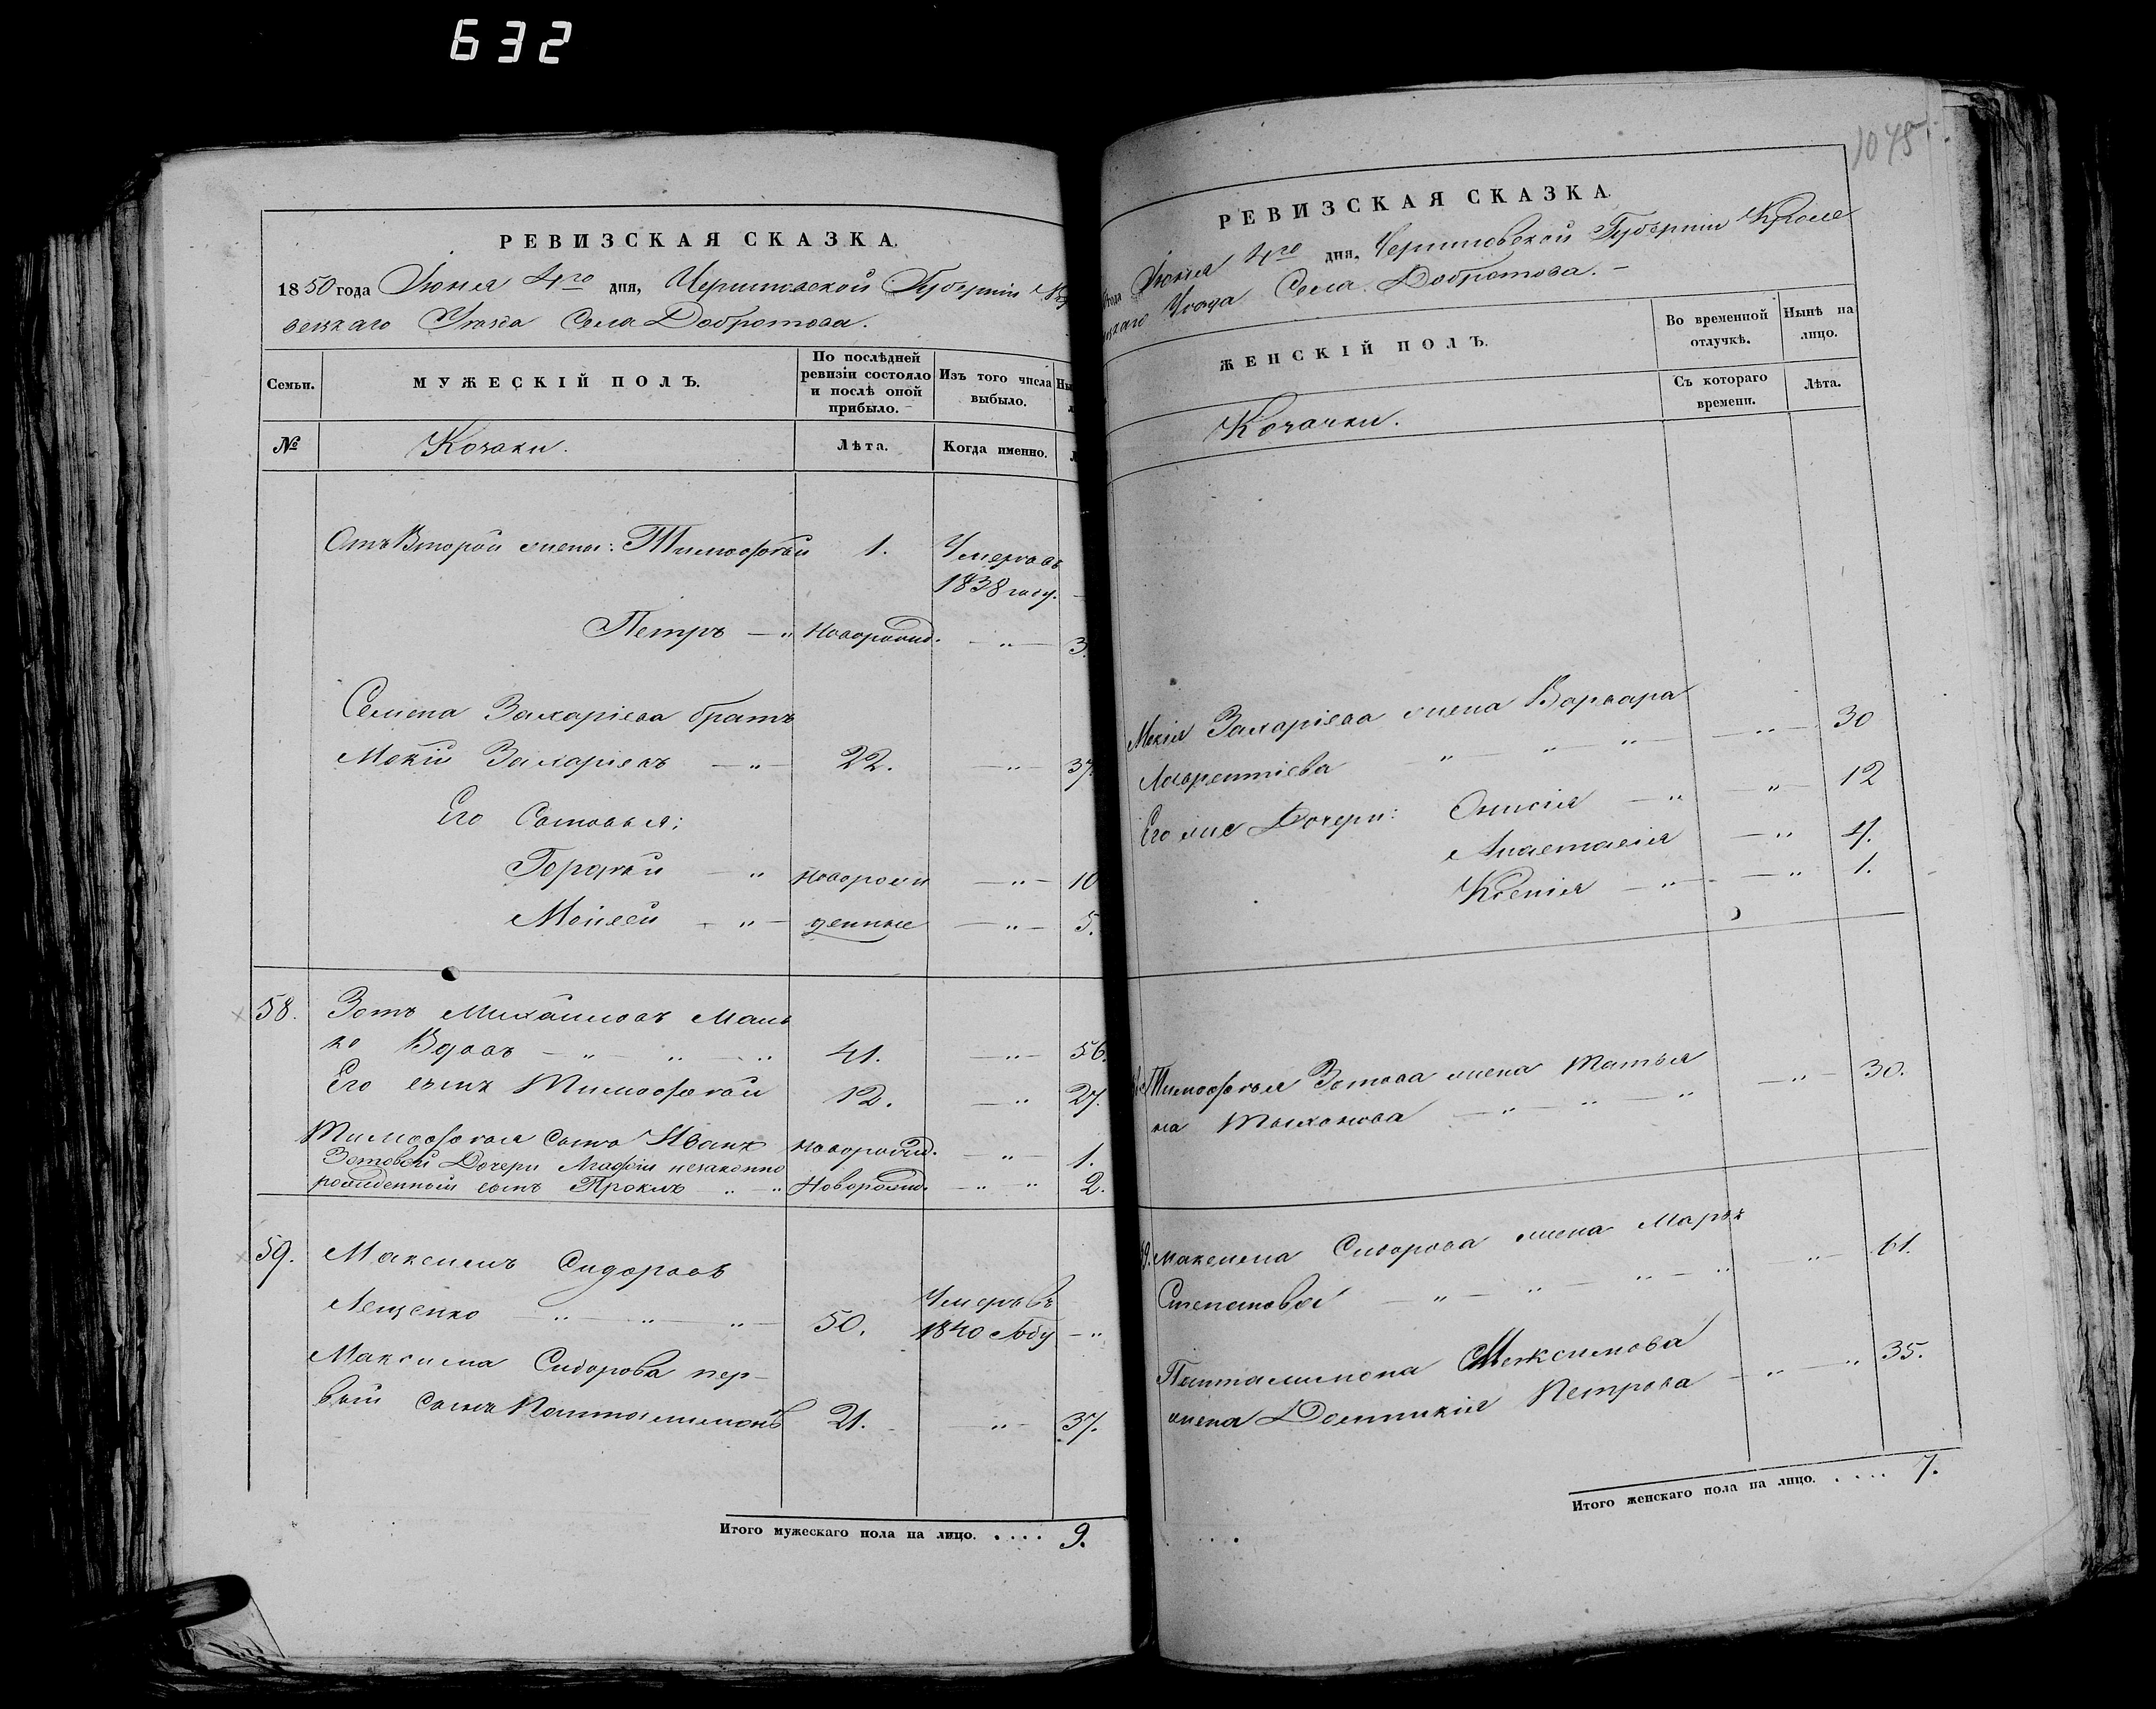 632
РЕВИЗСКАЯ СКАЗКА.
1850 года Июня 4го дня, Черниговской Губерніи
вецкаго Уѣзда Села Добротова.
Семьи.
МУЖЕСКІЙ ПОЛЪ.
По послѣдней ревизіи состояло и послѣ оной прибыло.
Изъ того числа выбыло.
№
Козаки.
Лѣта.
Когда именно.
Отъ Второй жены: Тимофѣй 1. Умеръ въ
1838 году.
Петръ — " Новорожд. — " — 3.
Семена Захаріева братъ
Мокій Захаріевъ — " — 22. — " — 37.
Его Сыновья:
Гордѣй — " Новорож — " — 10
Моисей — " — денные — " — 5.
58. Зотъ Михайловъ Мань
ко Вдовъ — " — " — " 41. — " — 56.
Его сынъ Тимофѣй 12. — " 27.
Тимофѣя сынъ Иванъ Новорожд. — " — 1.
Зотовой Дочери Агафіи незаконно
рожденный сынъ Проклъ — " — " Новорожд. — " — " 2.
59. Максимъ Сидоровъ
Лещенко — " — " — " — 50. Умеръ въ
1840 году — "
Максима Сидорова пер-
вый сынъ Пантолимонъ 21. — " — 37.
Итого мужескаго пола на лицо. . . . . 9.
1045
РЕВИЗСКАЯ СКАЗКА.
года Июня 4го дня, Черниговской Губерніи Кроле
вецкаго Уѣзда Села Добротова. —
ЖЕНСКІЙ ПОЛЪ.
Во временной отлучкѣ.
Нынѣ на лицо.
Съ котораго времени.
Лѣта.
Козачки.
Мокія Захаріева жена Варвара
Лаврентіева — " — " — " — — " — 30
Его же Дочери: Онисія — " — " — 12
Анастасія — " 4.
Ксенія — " — — " 1.
Тимофѣя Зотова жена Татья
на Тыхонова — " — " — " — " — 30.
Максима Сидорова жена Марья
Степановна — " — " — " — " — " — 61.
Пантолимона Максимова
жена Домникія Петрова — " — " 35.
Итого женскаго пола на лицо. . . . . 7.